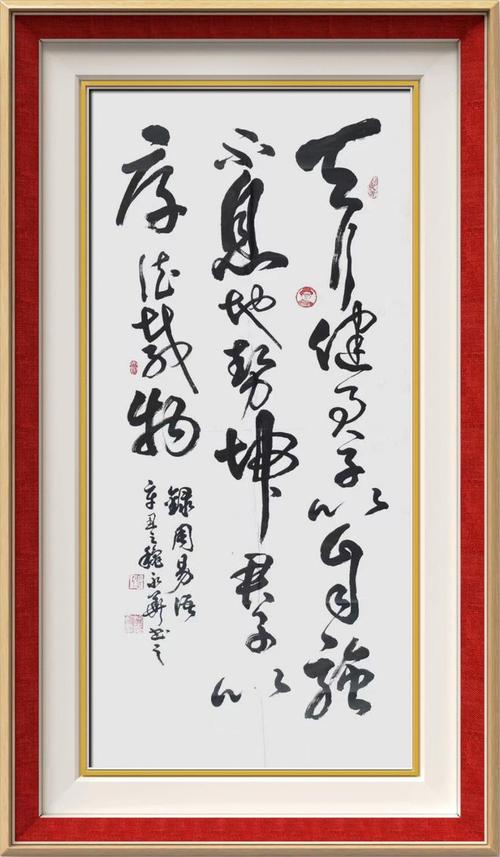 天行健君子以自強
不息地勢坤君子以
厚德載物
録周易语
辛丑之永華书之